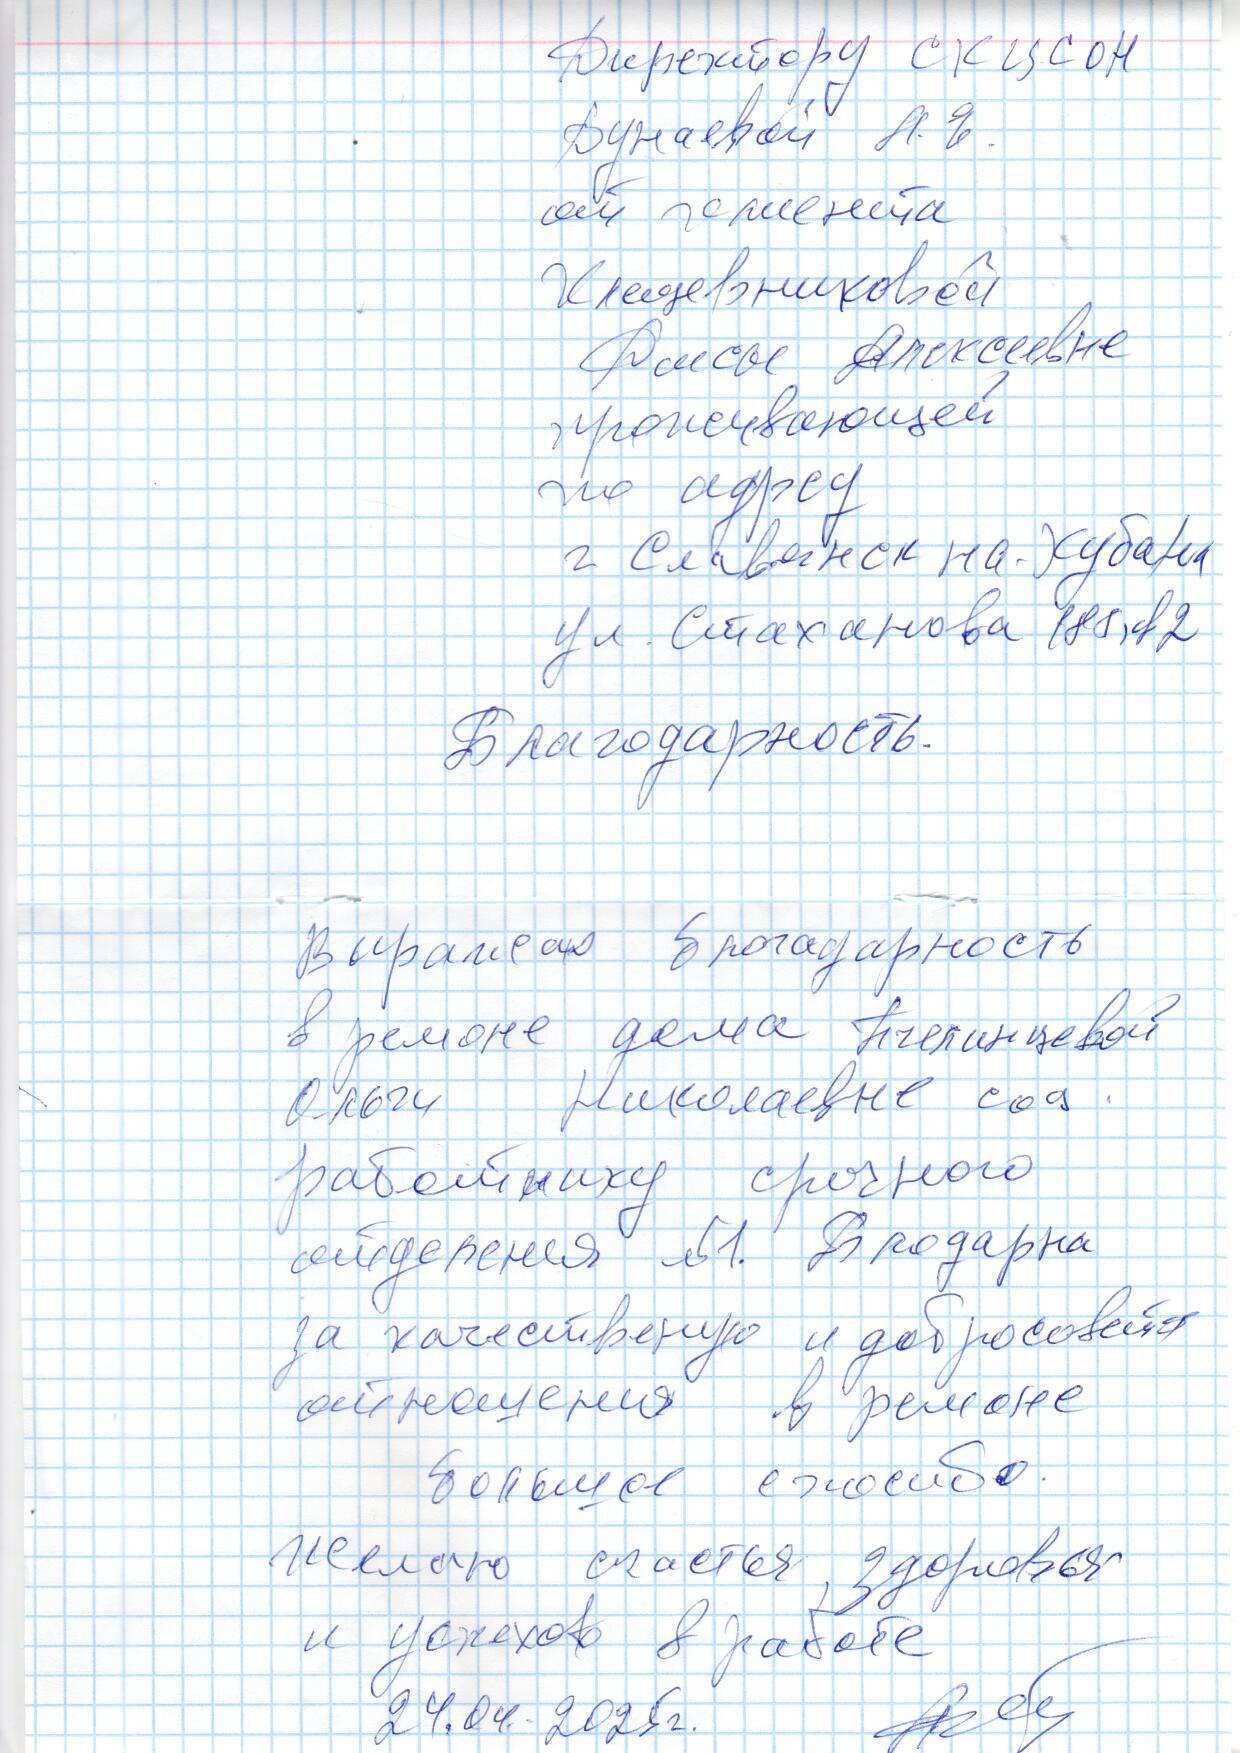 Директору СКЦСОН
Дунаевой
от клиента
Клещевниковой
Раисы Алексеевне
проживающей
по адресу
г Славянск на-Кубани
ул. Стаханова
Благодарность.
Выражаю благадарность
в ремоне дома Пчелинцевой
Ольги Николаевне соц.
работнику срочного
отделения №1. Блодарна
за качественую и добросовестн
отношения в ремоне
Большое спосибо.
Желаю счастья, здоровья
и успехов в работе
24.04.2025г.